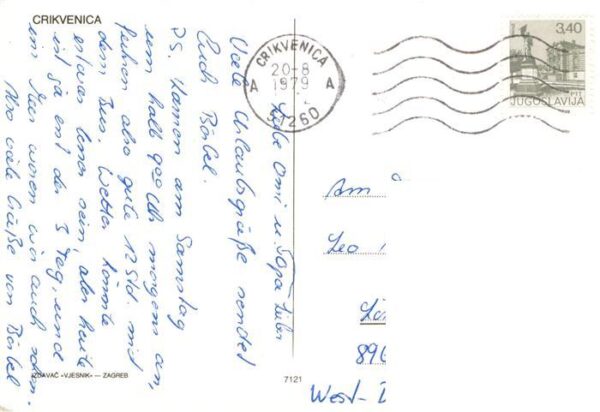 CRIKVENICA
CRIKVENICA
20-8
1979
A A
51260
3,40
PTT
JUGOSLAVIJA
Liebe Omi u. Opa
Viele Urlaubsgrüße sendet
Euch Bärbel.
P.S. Kamen am Samstag
um halb 900 Uhr morgens an,
fuhren also gute 12 Std. mit
dem Bus. Wetter könnte
etwas sein, aber heute
ist ja erst der 3. Tag, und
im Meer waren wir auch schon.
Also viele Grüße von Bärbel
Leo
896
West-
IZDAVAČ »VJESNIK« — ZAGREB
7121